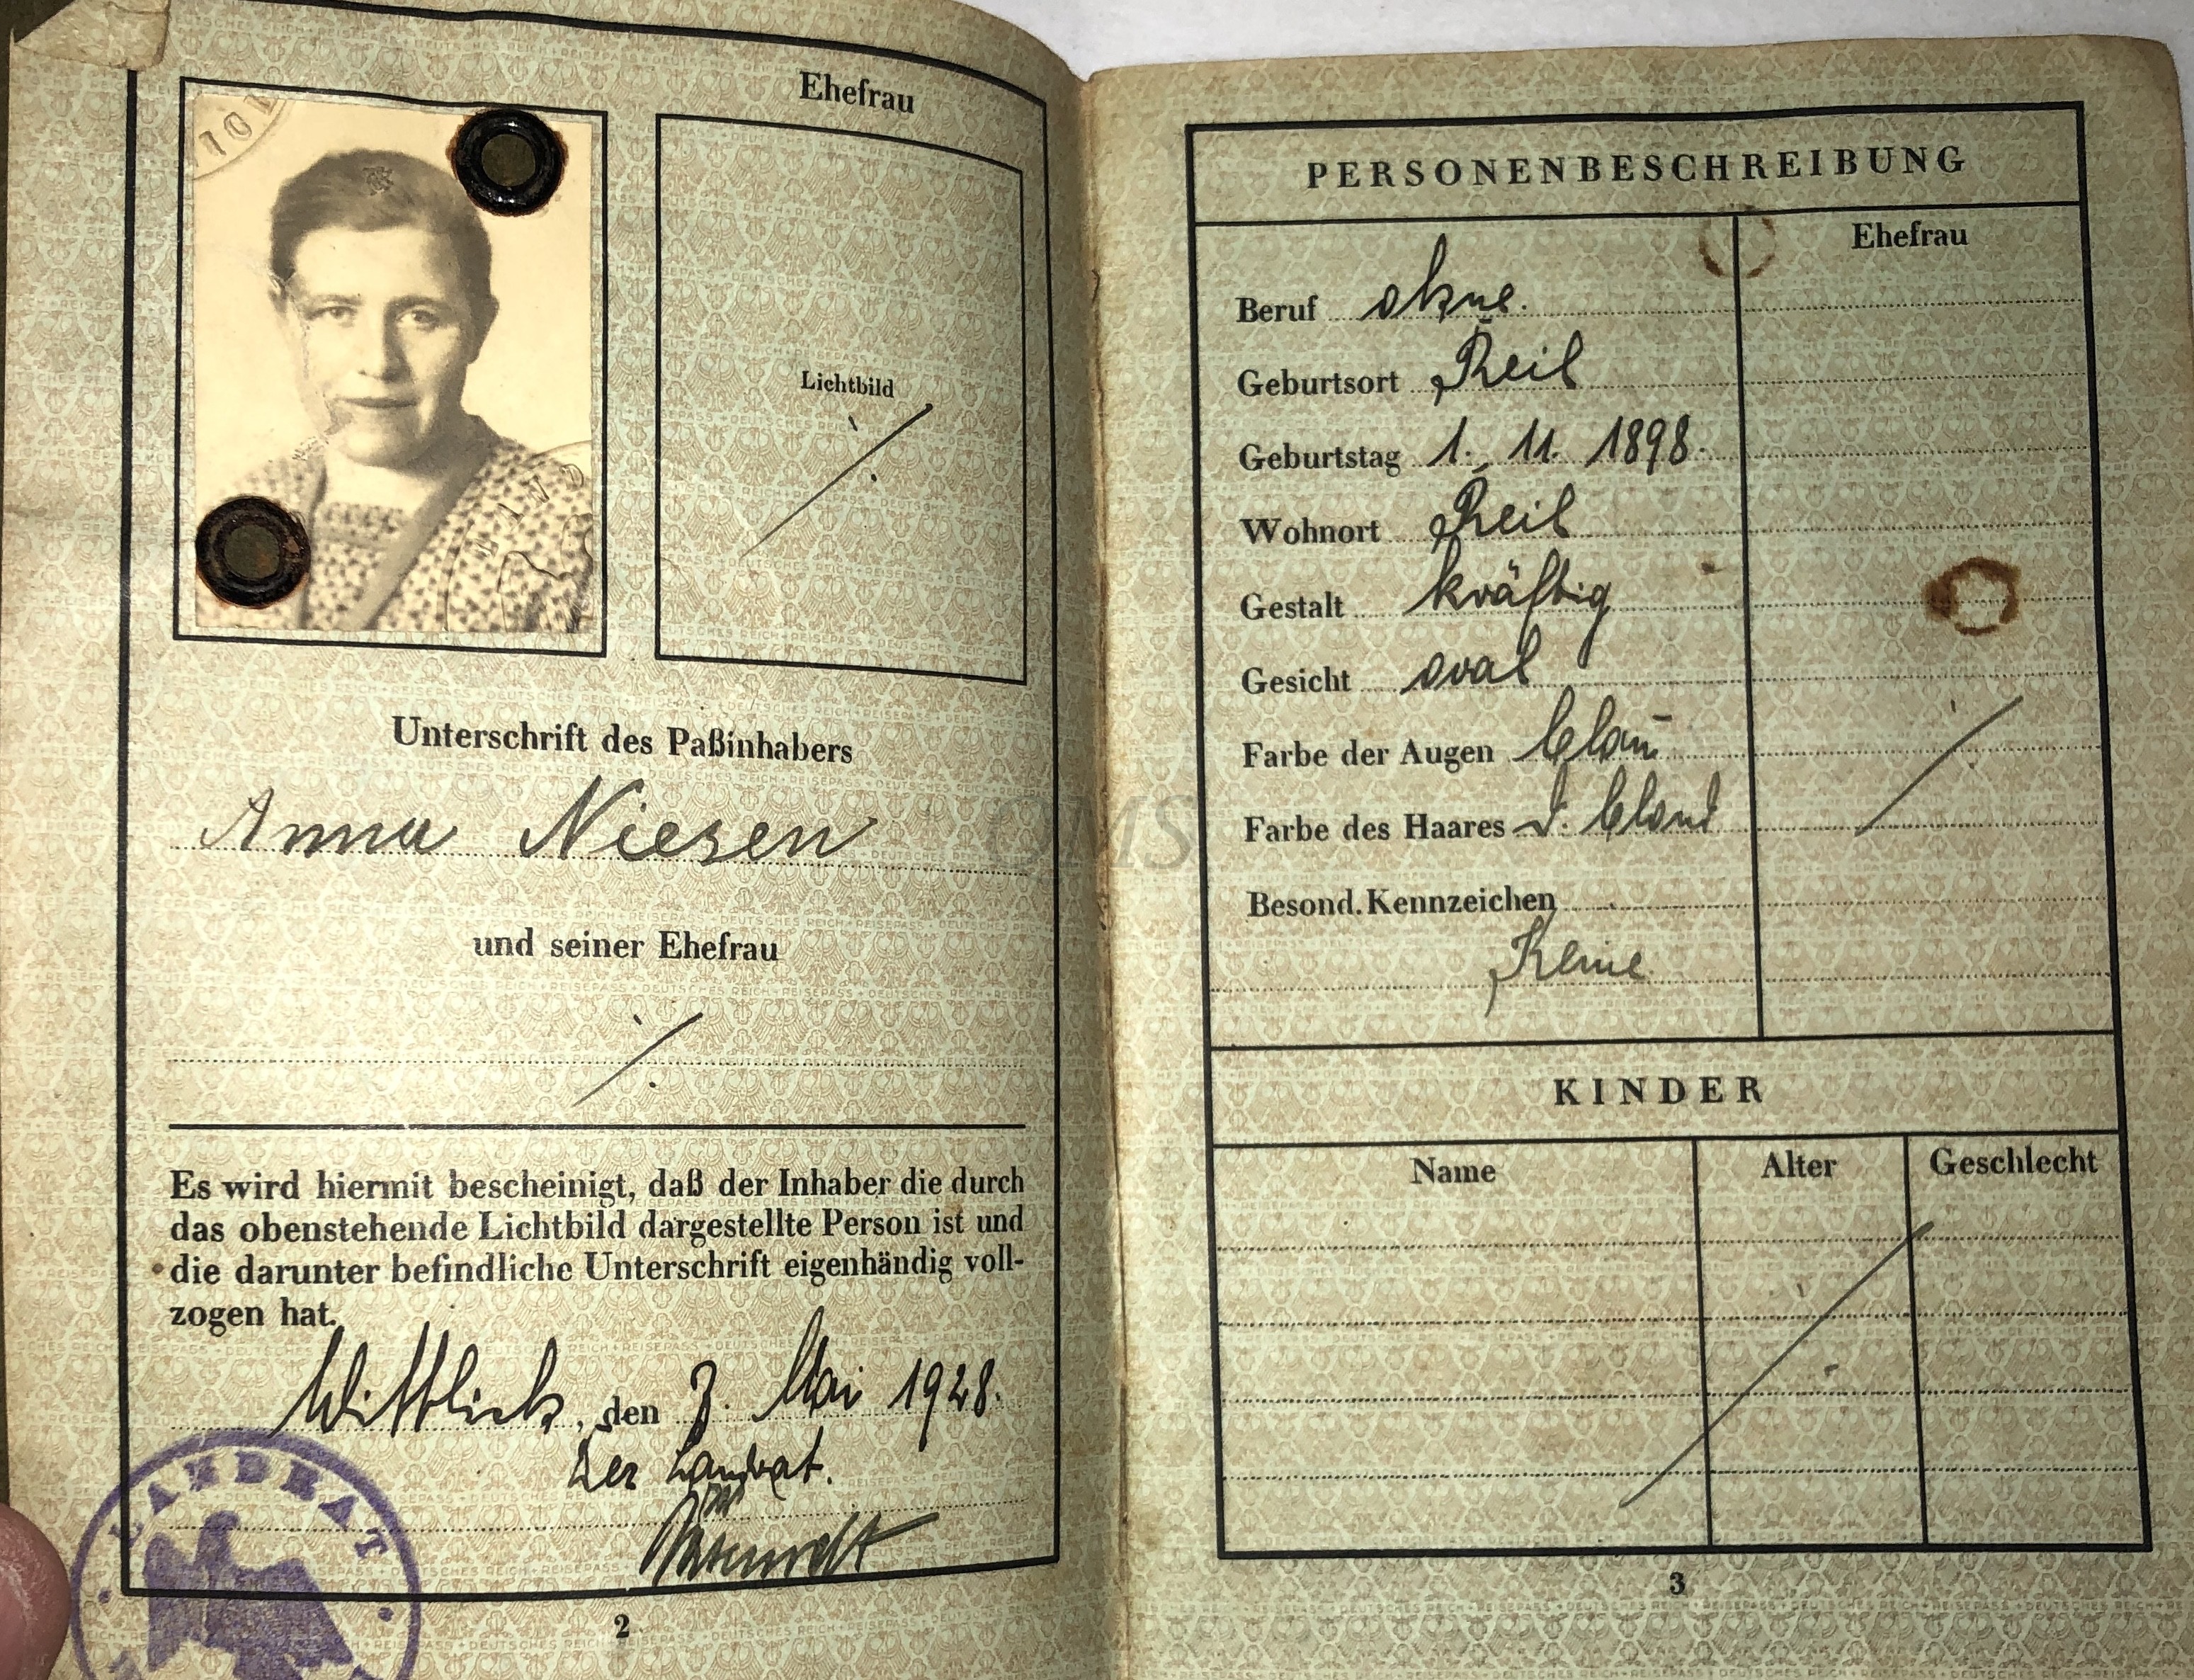 Ehefrau
Lichtbild
Unterschrift des Paßinhabers
Anna Niesen
und seiner Ehefrau
Es wird hiermit bescheinigt, daß der Inhaber die durch
das obenstehende Lichtbild dargestellte Person ist und
die darunter befindliche Unterschrift eigenhändig voll-
zogen hat.
Wittlich, den 7. Mai 1928.
Der Landrat.
LANDRAT
2
PERSONENBESCHREIBUNG
Ehefrau
Beruf ohne.
Geburtsort Reil
Geburtstag 1. 11. 1898.
Wohnort Reil
Gestalt kräftig
Gesicht oval
Farbe der Augen blau
Farbe des Haares d. blond
Besond. Kennzeichen
Keine
KINDER
Name Alter Geschlecht
3